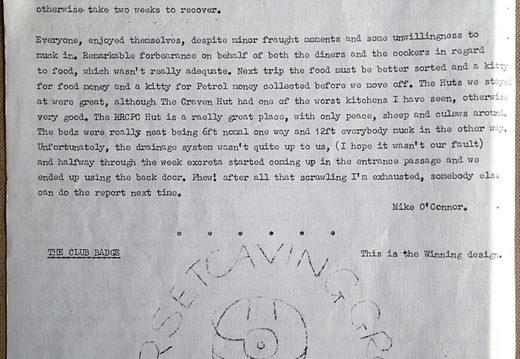 otherwise take two weeks to recover.
Everyone, enjoyed themselves, despite minor fraught moments and some unwillingness to
muck in. Remarkable forbearance on behalf of both the diners and the cookers in regard
to food, which wasn't really adequate. Next trip the food must be better sorted and a kitty
for food money and a kitty for Petrol money collected before we move off. The Huts we stayed
at were great, although The Craven Hut had one of the worst kitchens I have seen, otherwise
very good. The RRCPC Hut is a raelly great place, with only peace, sheep and culews around.
The beds were really neat being 6ft nomal one way and 12ft everybody muck in the other way.
Unfortunately, the drainage system wasn't quite up to us, (I hope it wasn't our fault)
and halfway through the week excreta started coming up in the entrance passage and we
ended up using the back door. Phew! after all that scrawling I'm exhausted, somebody else
can do the report next time.
Mike O'Connor.
* * * * * *
THE CLUB BADGE
This is the Winning design.
RSET CAVING GR